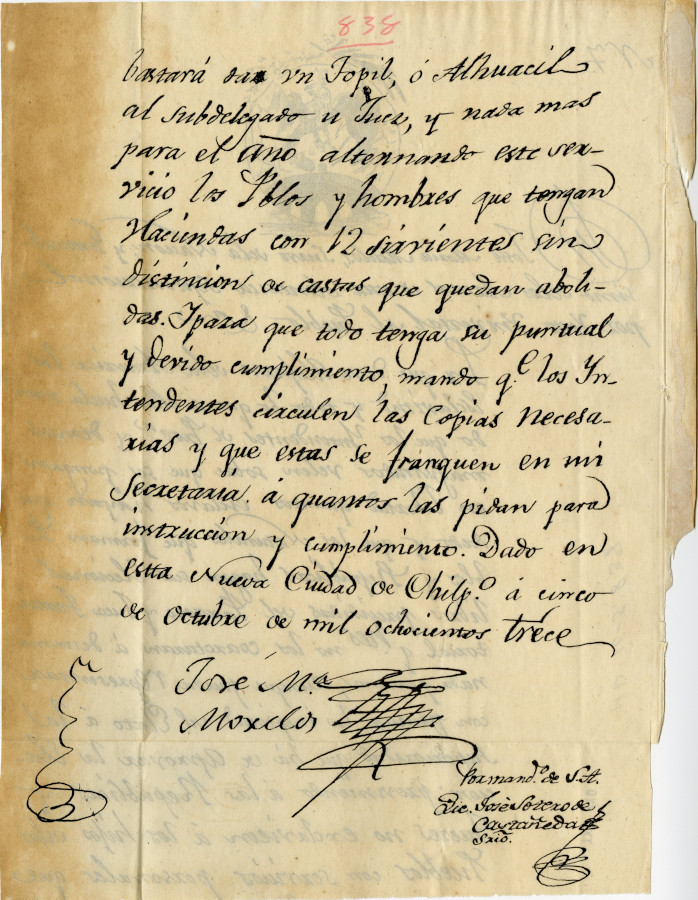 838
bastará dar vn Topil, ó Alhuacil
al subdelegado u Juez, y nada mas
para el año alternando este ser-
vicio los Pblos y hombres que tengan
Haciendas con 12 sirvientes sin
distincion de castas que quedan aboli-
das. Ipara que todo tenga su puntual
y devido cumplimiento, mando q.e los In-
tendentes circulen las Copias necesa-
rias y que estas se franquen en mi
Secretaria á quantos las pidan para
instruccion y cumplimiento. Dado en
estta Nueva Ciudad de Chilp.o á cinco
de Octubre de mil ochocientos trece
José M.a
Morelos
Por mand.o de S.A.
Lic. José Sotero de
Castañeda
Srio.